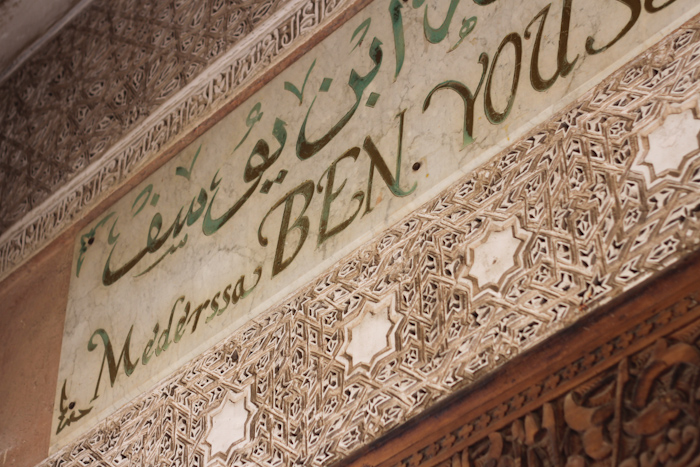 ابن يوسف
Médérssa BEN. YOUS